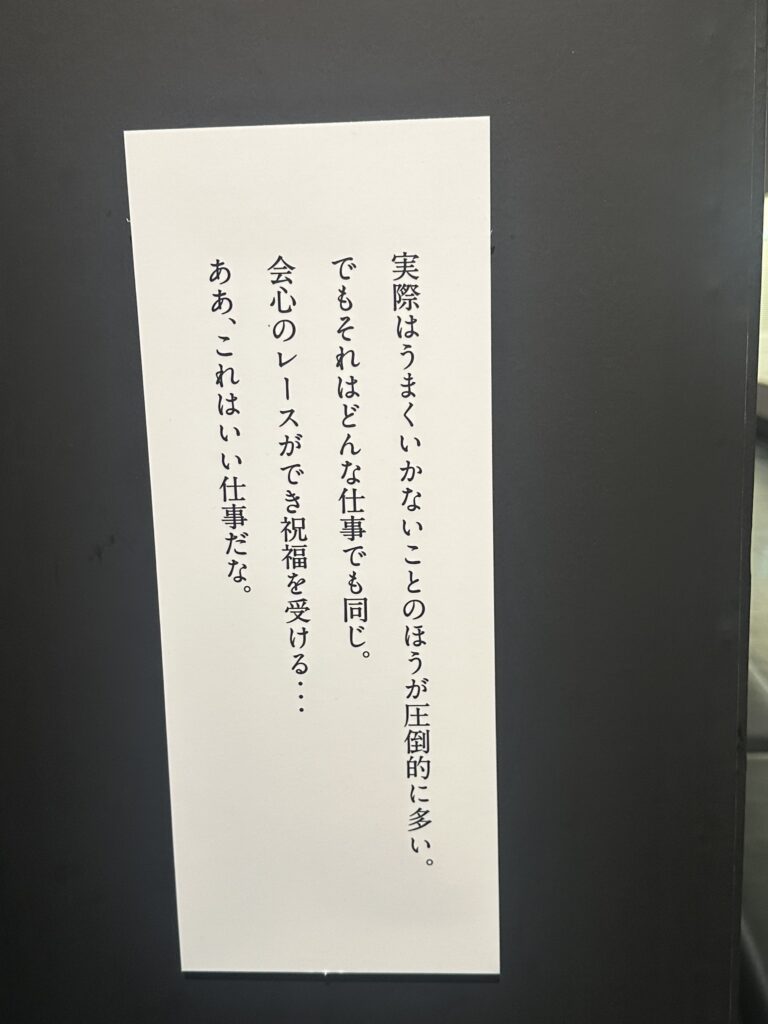 実際はうまくいかないことのほうが圧倒的に多い。
でもそれはどんな仕事でも同じ。
会心のレースができ祝福を受ける・・・
ああ、これはいい仕事だな。